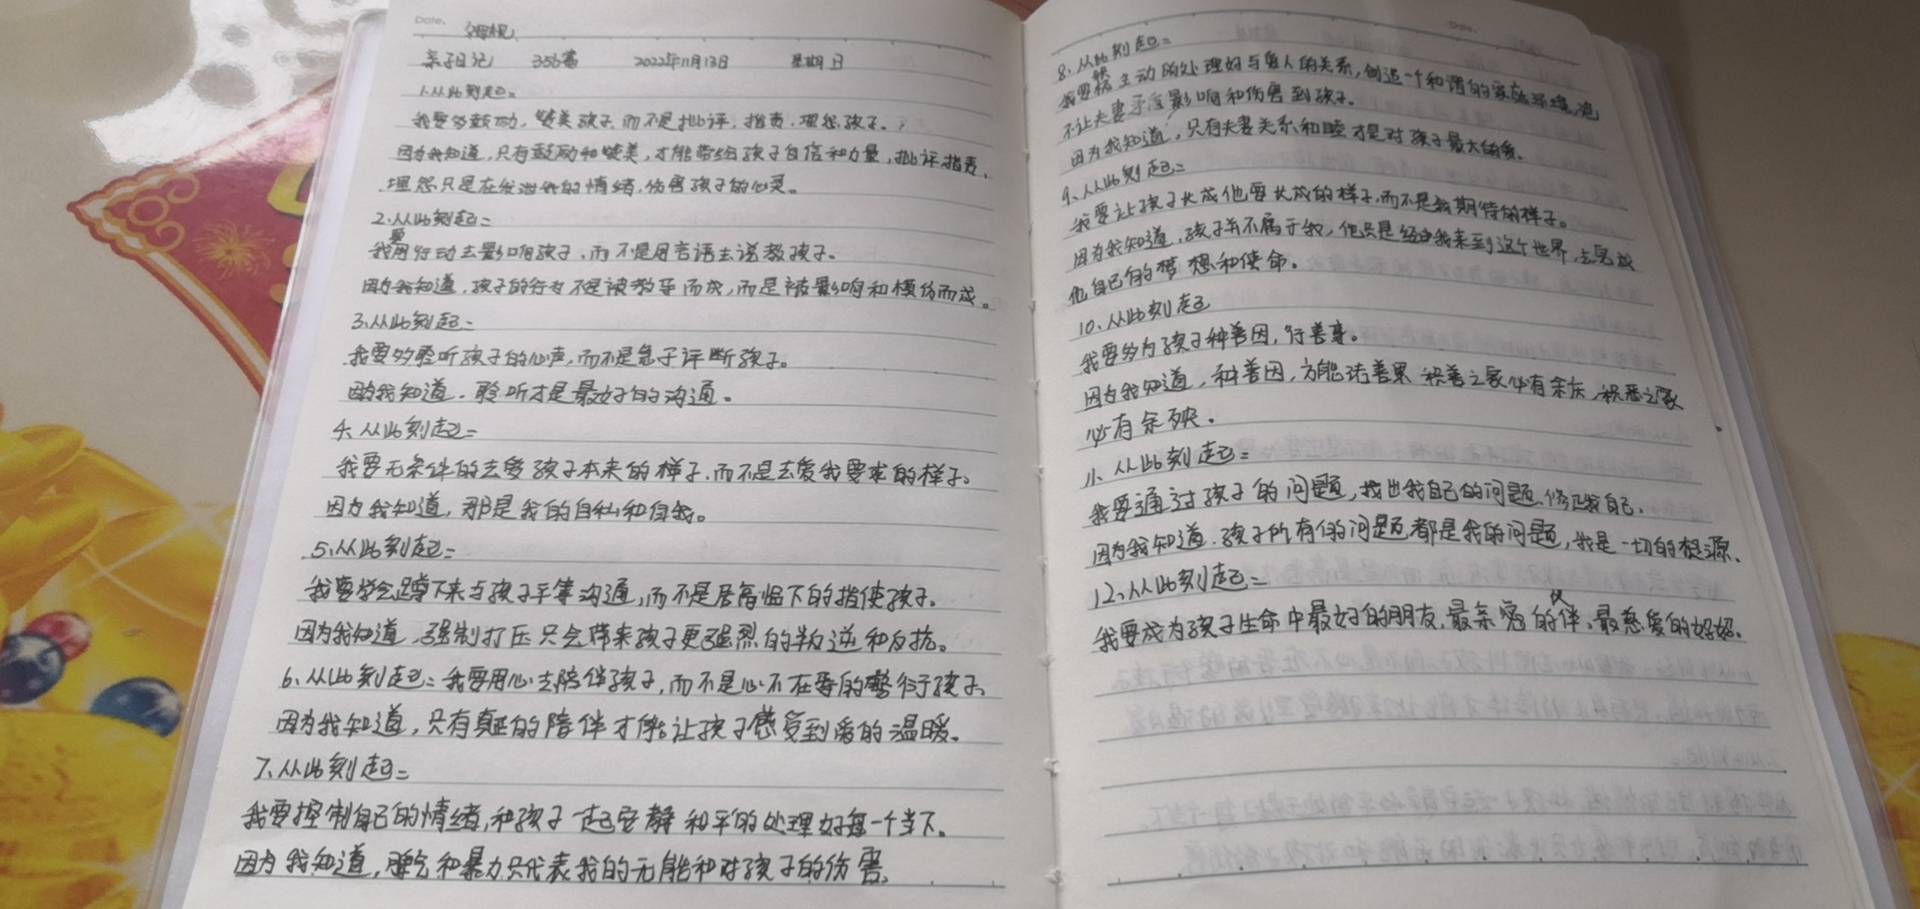 Date.
亲子日记 356篇 2022年11月13日 星期日
1.从此刻起:
我要多鼓励,赞美孩子,而不是批评,指责,埋怨孩子。
因为我知道,只有鼓励和赞美,才能带给孩子自信和力量,批评指责,
埋怨只是在发泄我的情绪,伤害孩子的心灵。
2.从此刻起:
我要用行动去影响孩子,而不是用言语去说教孩子。
因为我知道,孩子的行为不是被教导而成,而是被影响和模仿而成。
3、从此刻起:
我要多聆听孩子的心声,而不是急于评断孩子。
因为我知道,聆听才是最好的沟通。
4、从此刻起:
我要无条件的去爱孩子本来的样子,而不是去爱我要求的样子。
因为我知道,那是我的自私和自我。
5、从此刻起:
我要学会蹲下来与孩子平等沟通,而不是居高临下的指使孩子。
因为我知道,强制打压只会带来孩子更强烈的叛逆和反抗。
6、从此刻起:我要用心去陪伴孩子,而不是心不在焉的敷衍孩子。
因为我知道,只有真正的陪伴才能让孩子感受到爱的温暖。
7、从此刻起:
我要控制自己的情绪,和孩子一起安静和平的处理好每一个当下。
因为我知道,脾气和暴力只代表我的无能和对孩子的伤害。
Date.
8、从此刻起:
我要积极主动的处理好与爱人的关系,创造一个和谐的家庭环境,绝
不让夫妻矛盾影响和伤害到孩子。
因为我知道,只有夫妻关系和睦才是对孩子最大的爱。
9、从此刻起:
我要让孩子长成他要长成的样子,而不是我期待的样子。
因为我知道,孩子并不属于我,他只是经由我来到这个世界,去完成
他自己的梦想和使命。
10、从此刻起
我要多为孩子种善因,行善事。
因为我知道,种善因,方能结善果 积善之家必有余庆,积恶之家
必有余殃。
11、从此刻起:
我要通过孩子的问题,找出我自己的问题,修正我自己.
因为我知道.孩子所有的问题都是我的问题,我是一切的根源.
12、从此刻起:
我要成为孩子生命中最好的朋友,最亲密的伙伴,最慈爱的妈妈。